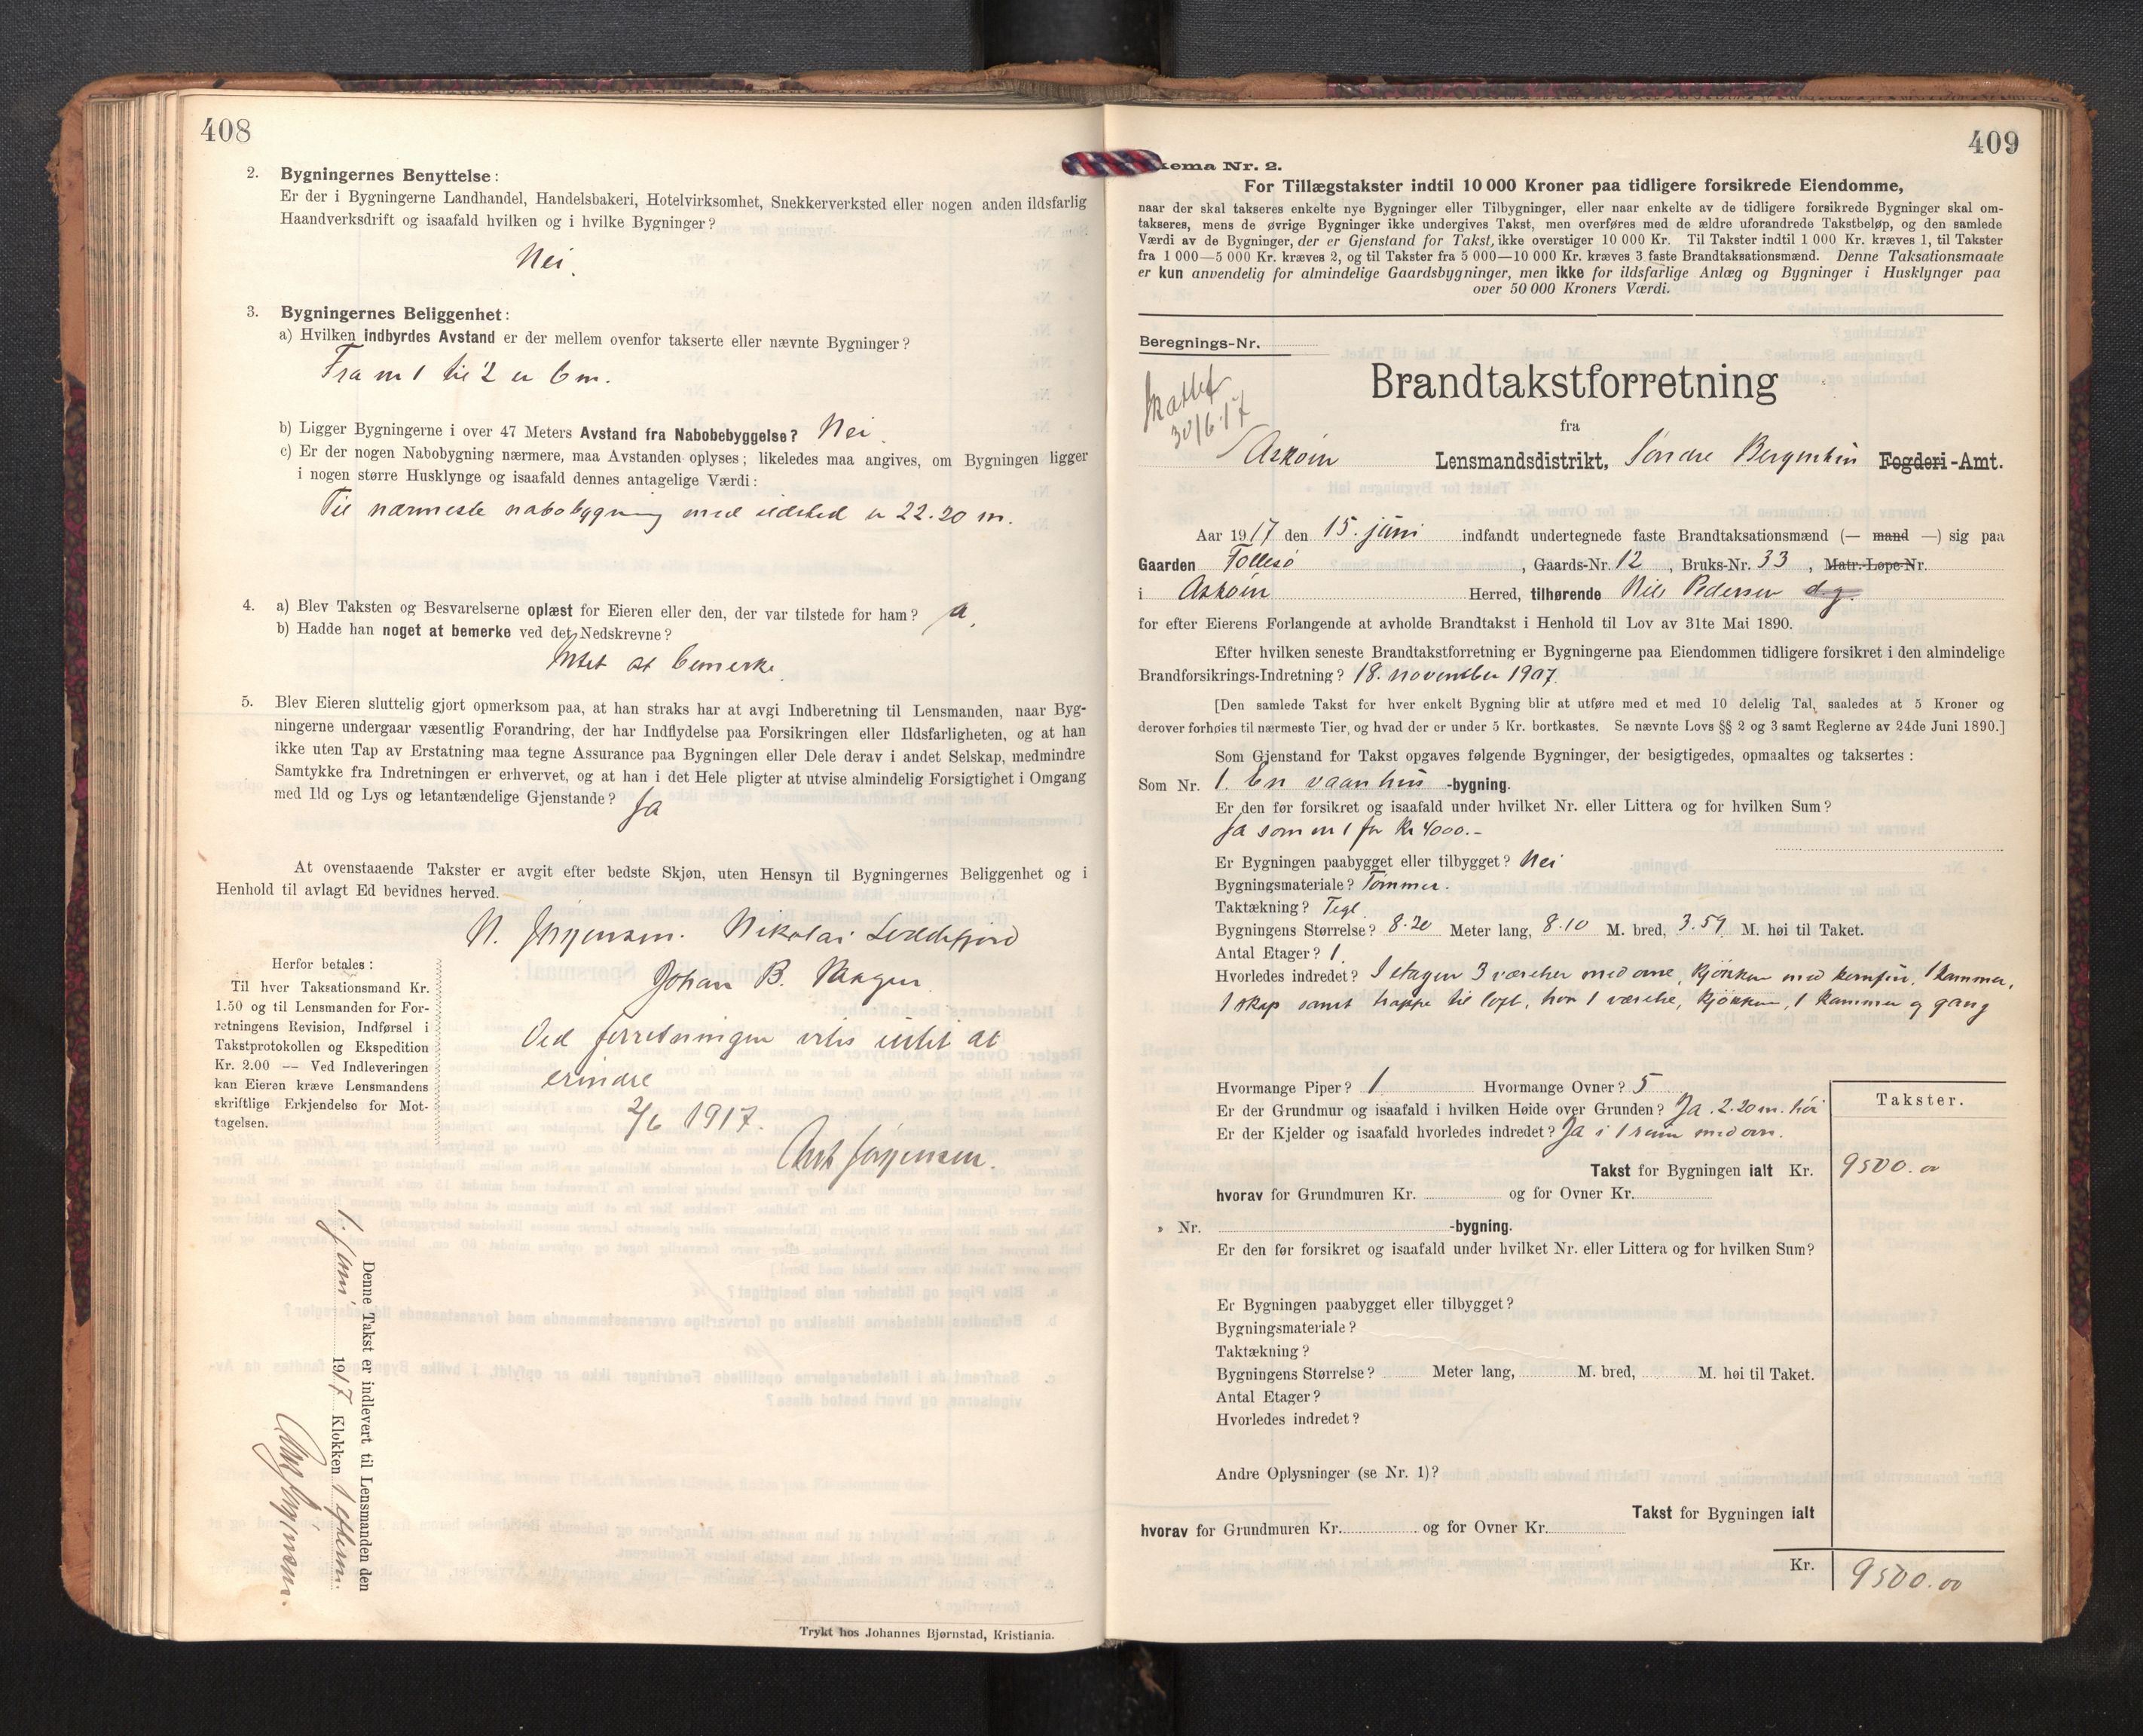 408
2. Bygningernes Benyttelse:
Er der i Bygningerne Landhandel, Handelsbakeri, Hotelvirksomhet, Snekkerverksted eller nogen anden ildsfarlig
Haandverksdrift og isaafald hvilken og i hvilke Bygninger?
Nei.
3. Bygningernes Beliggenhet:
a) Hvilken indbyrdes Avstand er der mellem ovenfor takserte eller nævnte Bygninger?
Fra nr 1 til 2 er 6 m.
b) Ligger Bygningerne i over 47 Meters Avstand fra Nabobebyggelse? Nei.
c) Er der nogen Nabobygning nærmere, maa Avstanden oplyses; likeledes maa angives, om Bygningen ligger
i nogen større Husklynge og isaafald dennes antagelige Værdi:
Til nærmeste nabobygning med ildsted er 22.20 m.
4. a) Blev Taksten og Besvarelserne oplæst for Eieren eller den, der var tilstede for ham? Ja.
b) Hadde han noget at bemerke ved det Nedskrevne?
Intet at bemerke.
5. Blev Eieren sluttelig gjort opmerksom paa, at han straks har at avgi Indberetning til Lensmanden, naar Byg-
ningerne undergaar væsentlig Forandring, der har Indflydelse paa Forsikringen eller Ildsfarligheten, og at han
ikke uten Tap av Erstatning maa tegne Assurance paa Bygningen eller Dele derav i andet Selskap, medmindre
Samtykke fra Indretningen er erhvervet, og at han i det Hele pligter at utvise almindelig Forsigtighet i Omgang
med Ild og Lys og letantændelige Gjenstande? Ja
At ovenstaaende Takster er avgit efter bedste Skjøn, uten Hensyn til Bygningernes Beliggenhet og i
Henhold til avlagt Ed bevidnes herved.
N. Jørgensen. Nikolai
Johan B. Haagen
Herfor betales:
Til hver Taksationsmand Kr.
1.50 og til Lensmanden for For-
retningens Revision, Indførsel i
Takstprotokollen og Ekspedition
Kr. 2.00 — Ved Indleveringen
kan Eieren kræve Lensmandens
skriftlige Erkjendelse for Mot-
tagelsen.
Ved forretningen intet at
erindre
2/6 1917.
Jørgensen.
Denne Takst er indlevert til Lensmanden den
1 juni 1917 Klokken 1 efterm.
Jørgensen.
Trykt hos Johannes Bjørnstad, Kristiania.
409
kema Nr. 2.
For Tillægstakster indtil 10 000 Kroner paa tidligere forsikrede Eiendomme,
naar der skal takseres enkelte nye Bygninger eller Tilbygninger, eller naar enkelte av de tidligere forsikrede Bygninger skal om-
takseres, mens de øvrige Bygninger ikke undergives Takst, men overføres med de ældre uforandrede Takstbeløp, og den samlede
Værdi av de Bygninger, der er Gjenstand for Takst, ikke overstiger 10 000 Kr. Til Takster indtil 1 000 Kr. kræves 1, til Takster
fra 1 000—5 000 Kr. kræves 2, og til Takster fra 5 000—10 000 Kr. kræves 3 faste Brandtaksationsmænd. Denne Taksationsmaate
er kun anvendelig for almindelige Gaardsbygninger, men ikke for ildsfarlige Anlæg og Bygninger i Husklynger paa
over 50 000 Kroners Værdi.
Beregnings-Nr.
30/6 17
Brandtakstforretning
fra
Askøin Lensmandsdistrikt, Søndre Bergenhus Fogderi-Amt.
Aar 1917 den 15. juni indfandt undertegnede faste Brandtaksationsmænd (— mand —) sig paa
Gaarden Follesø, Gaards-Nr. 12, Bruks-Nr. 33, Matr.-Løpe-Nr.
i Askøin Herred, tilhørende Nils Pedersen d.y.
for efter Eierens Forlangende at avholde Brandtakst i Henhold til Lov av 31te Mai 1890.
Efter hvilken seneste Brandtakstforretning er Bygningerne paa Eiendommen tidligere forsikret i den almindelige
Brandforsikrings-Indretning? 18. november 1907.
[Den samlede Takst for hver enkelt Bygning blir at utføre med et med 10 delelig Tal, saaledes at 5 Kroner og
derover forhøies til nærmeste Tier, og hvad der er under 5 Kr. bortkastes. Se nævnte Lovs §§ 2 og 3 samt Reglerne av 24de Juni 1890.]
Som Gjenstand for Takst opgaves følgende Bygninger, der besigtigedes, opmaaltes og taksertes:
Som Nr. 1. En vaanhus -bygning.
Er den før forsikret og isaafald under hvilket Nr. eller Littera og for hvilken Sum?
Ja som nr 1 for Kr 4000.-
Er Bygningen paabygget eller tilbygget? Nei
Bygningsmateriale? Tømmer.
Taktækning? Tegl.
Bygningens Størrelse? 8.20 Meter lang, 8.10 M. bred, 3.59 M. høi til Taket.
Antal Etager? 1.
Hvorledes indredet? I etagen 3 værelser med ovne, kjøkken med komfur, 1 kammer,
1 skap samt trappe til loft, hvor 1 værelse, kjøkken, 1 kammer og gang
Hvormange Piper? 1 Hvormange Ovner? 5
Er der Grundmur og isaafald i hvilken Høide over Grunden? Ja. 2.20 m. høi
Er der Kjelder og isaafald hvorledes indredet? Ja i 1 rum med ovn.
Takster.
Takst for Bygningen ialt Kr. 9500.00
hvorav for Grundmuren Kr. og for Ovner Kr.
» Nr. -bygning.
Er den før forsikret og isaafald under hvilket Nr. eller Littera og for hvilken Sum?
Er Bygningen paabygget eller tilbygget?
Bygningsmateriale?
Taktækning?
Bygningens Størrelse? Meter lang, M. bred, M. høi til Taket.
Antal Etager?
Hvorledes indredet?
Andre Oplysninger (se Nr. 1)?
Takst for Bygningen ialt
hvorav for Grundmuren Kr. og for Ovner Kr.
Kr. 9500.00